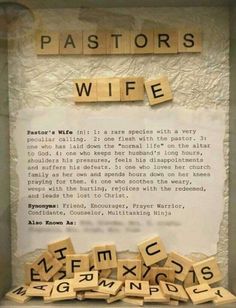 PASTORS
WIFE
Pastor's Wife (n): 1: a rare species with a very
peculiar calling. 2: one flesh with the pastor. 3:
one who has laid down the "normal life" on the altar
to God. 4: one who keeps her husband's long hours,
shoulders his pressures, feels his disappointments
and suffers his defeats. 5: one who loves her church
family as her own and spends hours down on her knees
praying for them. 6: one who soothes the weary,
weeps with the hurting, rejoices with the redeemed,
and leads the lost to Christ.
Synonyms: Friend, Encourager, Prayer Warrior,
Confidante, Counselor, Multitasking Ninja
Also Known As: